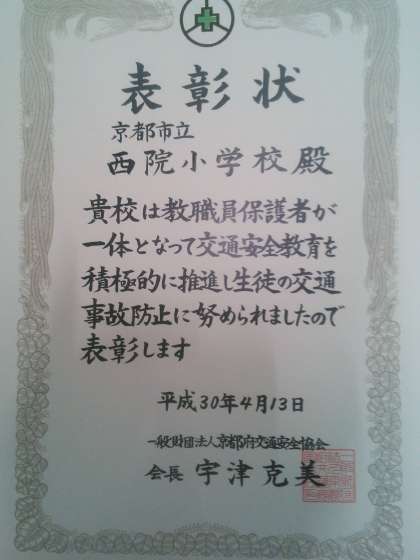 表彰状
京都市立
西院小学校殿
貴校は教職員保護者が
一体となって交通安全教育を
積極的に推進し生徒の交通
事故防止に努められましたので
表彰します
平成30年4月13日
一般財団法人京都府交通安全協会
会長 宇津克美